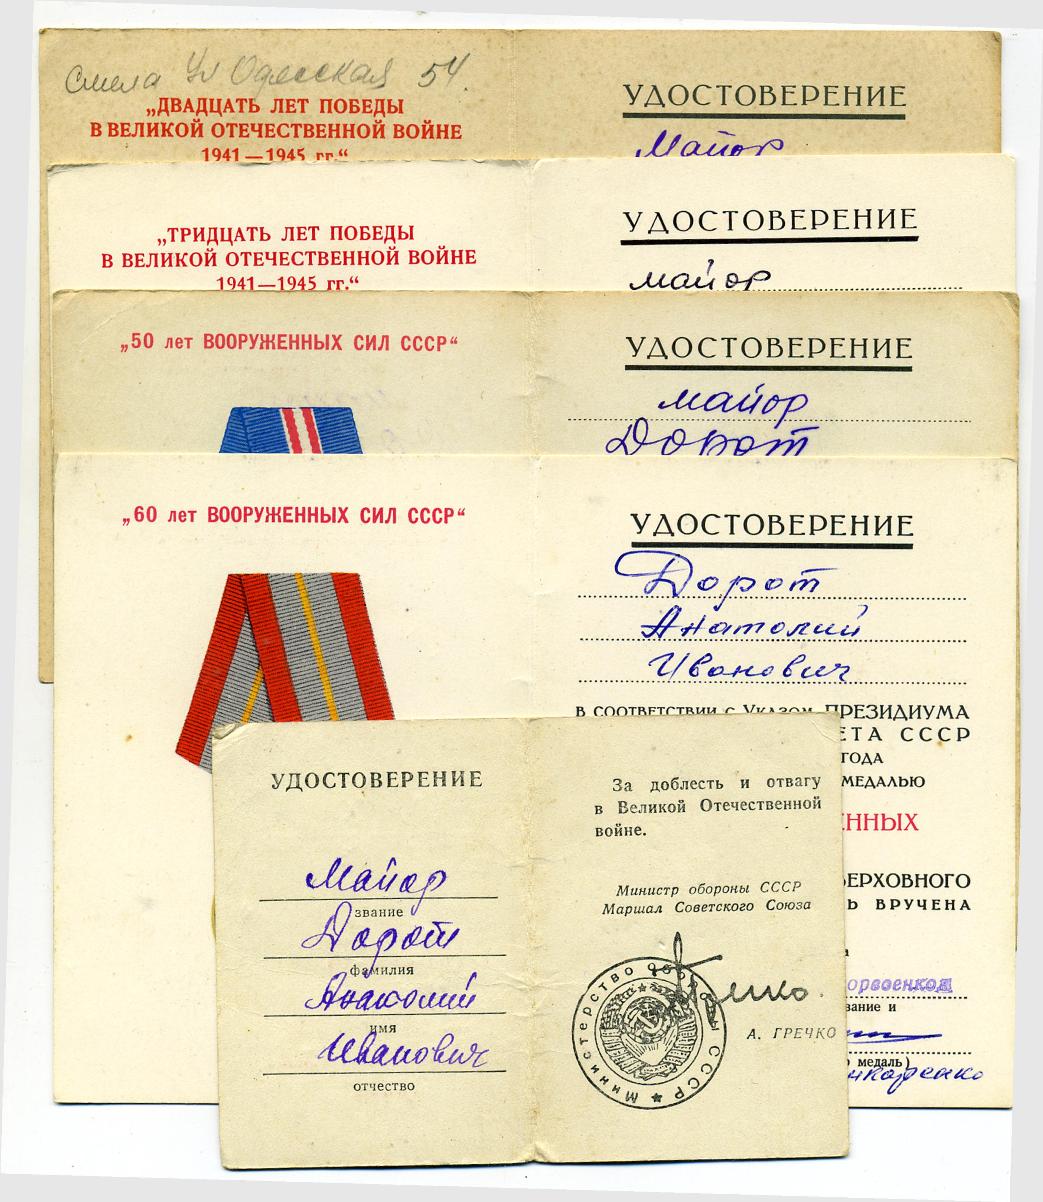 Смела Ул Одесская 54.
„ДВАДЦАТЬ ЛЕТ ПОБЕДЫ
В ВЕЛИКОЙ ОТЕЧЕСТВЕННОЙ ВОЙНЕ
1941—1945 гг.“
УДОСТОВЕРЕНИЕ
Майор
„ТРИДЦАТЬ ЛЕТ ПОБЕДЫ
В ВЕЛИКОЙ ОТЕЧЕСТВЕННОЙ ВОЙНЕ
1941—1945 гг.“
УДОСТОВЕРЕНИЕ
майор
„50 лет ВООРУЖЕННЫХ СИЛ СССР“
УДОСТОВЕРЕНИЕ
майор
Дорот
„60 лет ВООРУЖЕННЫХ СИЛ СССР“
УДОСТОВЕРЕНИЕ
Дорот
Анатолий
Иванович
В СООТВЕТСТВИИ с Указом ПРЕЗИДИУМА
ЕТА СССР
ГОДА
МЕДАЛЬЮ
ЕННЫХ
ЕРХОВНОГО
Ь ВРУЧЕНА
орвоенком
вание и
медаль)
УДОСТОВЕРЕНИЕ
Майор
звание
Дорот
фамилия
Анатолий
имя
Иванович
отчество
За доблесть и отвагу
в Великой Отечественной
войне.
Министр обороны СССР
Маршал Советского Союза
Министерство обороны СССР
А. ГРЕЧКО